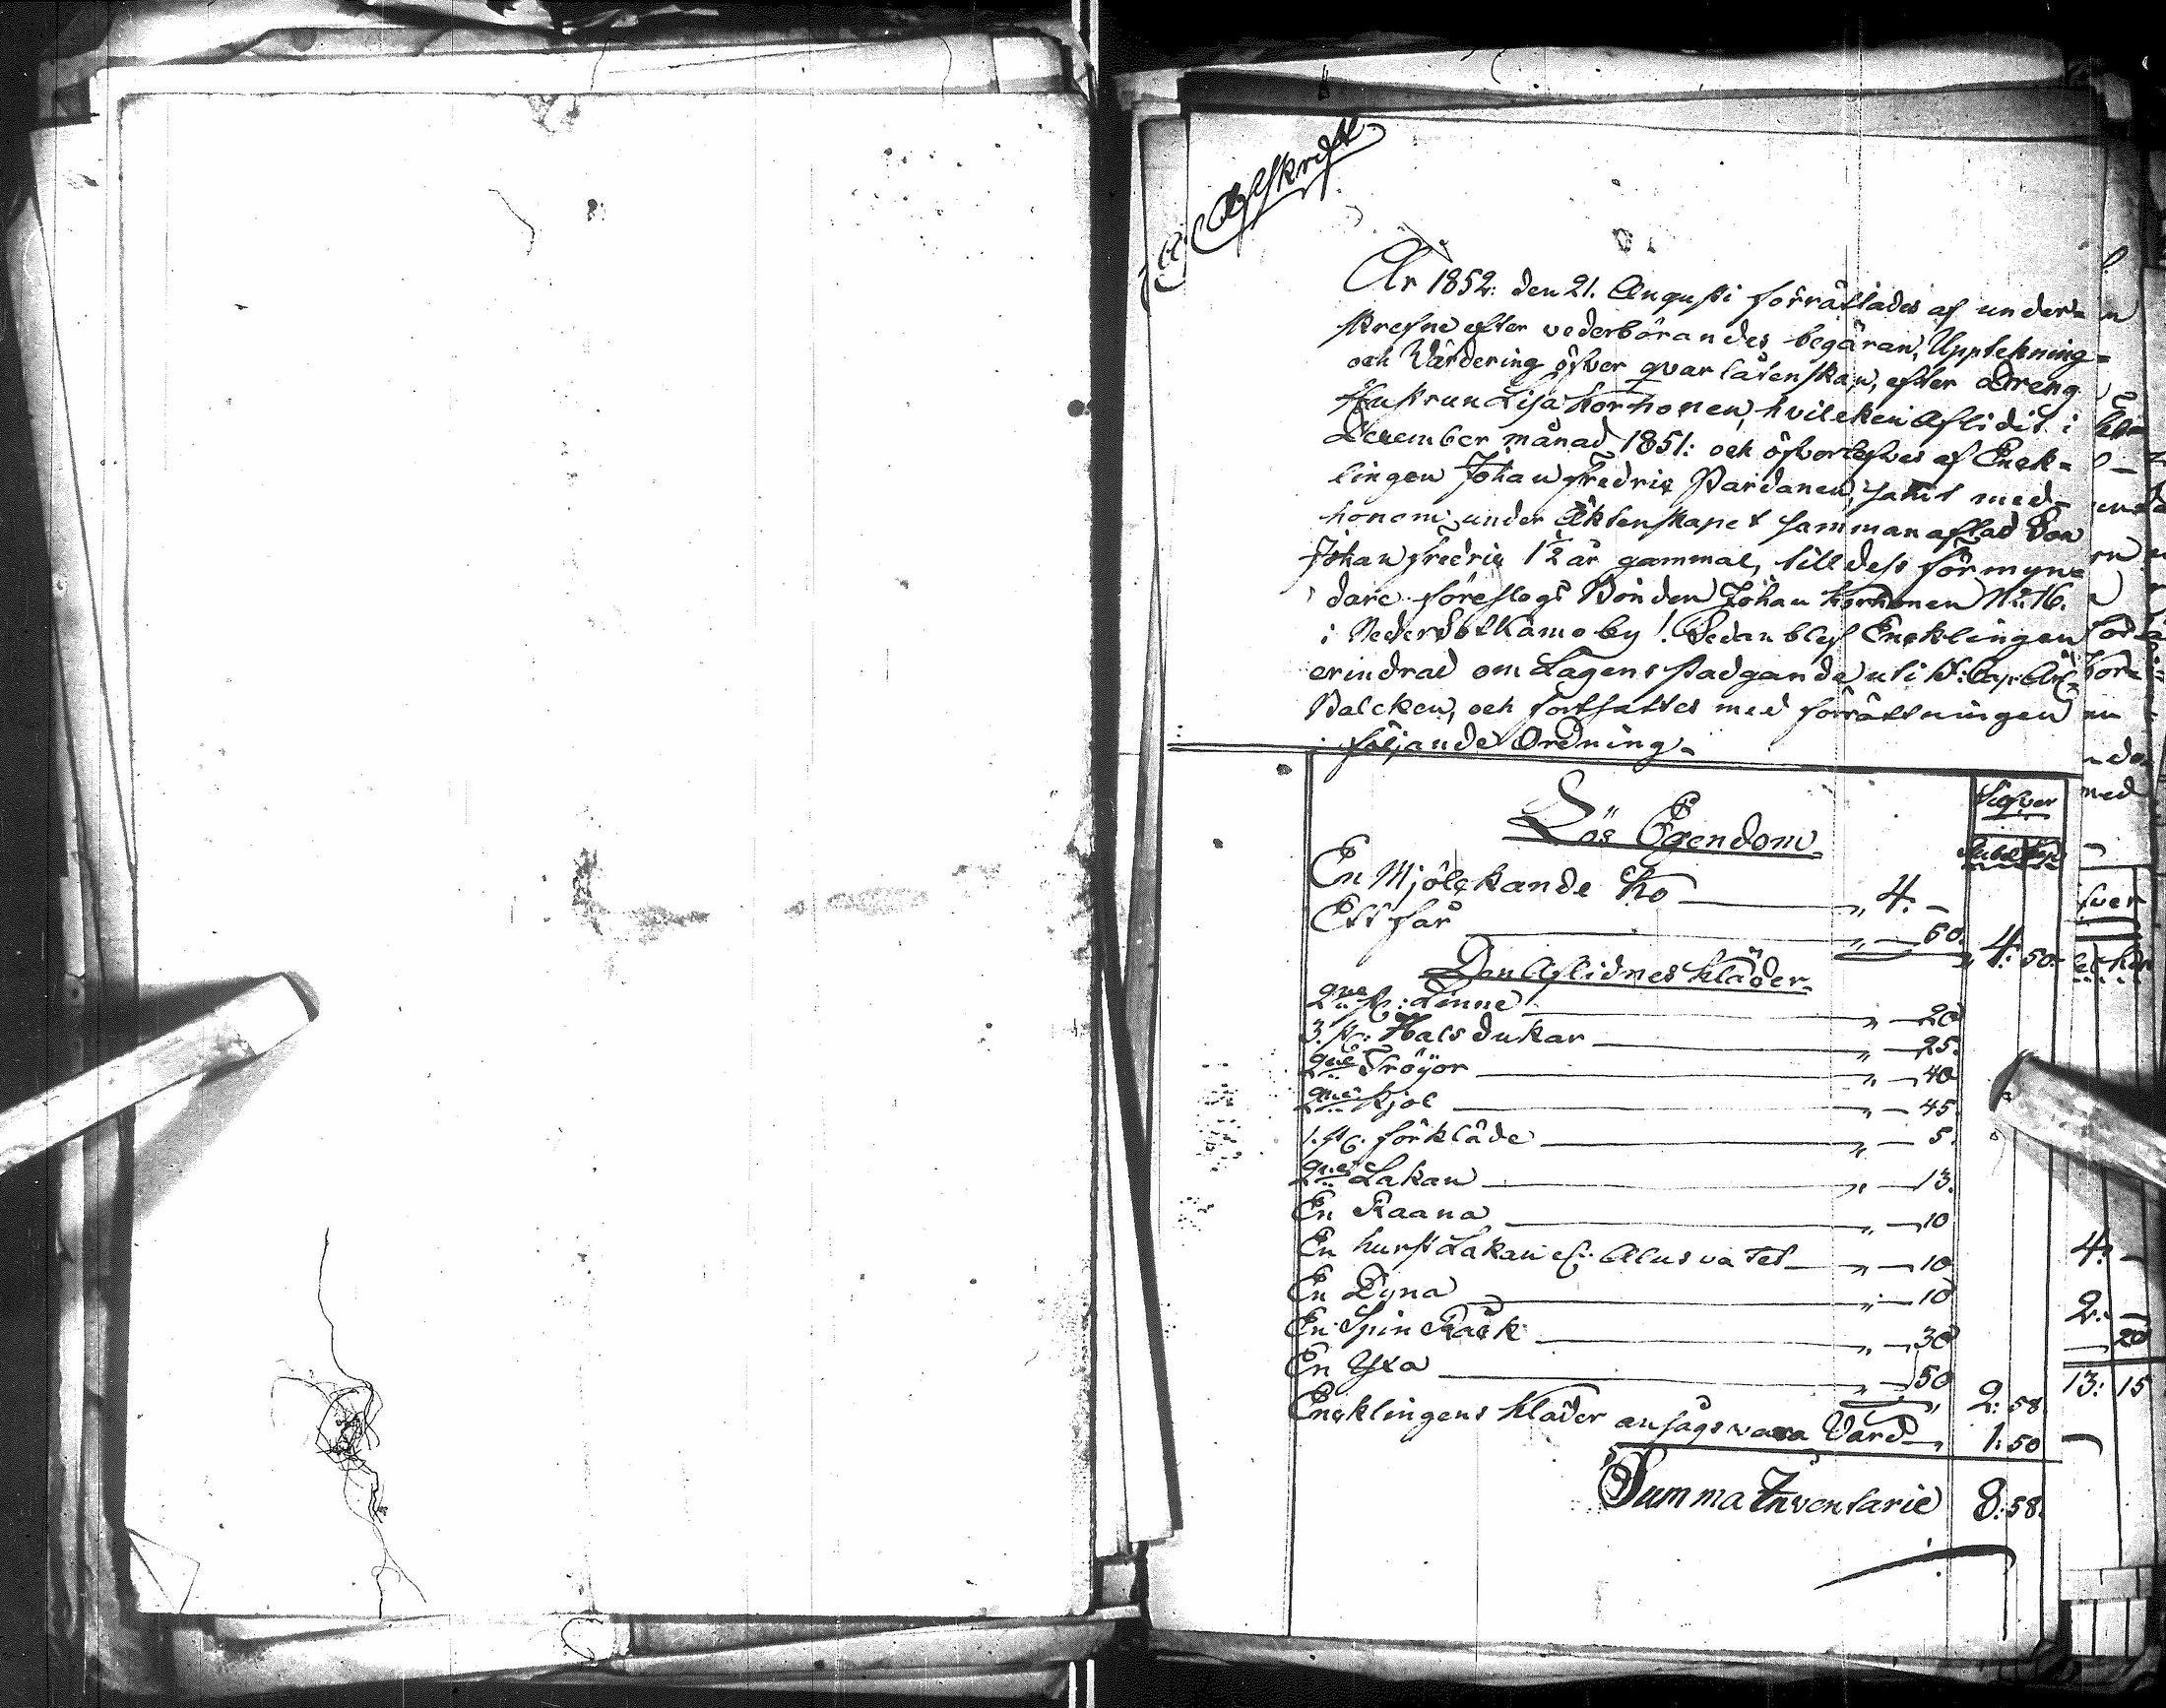 Afskrift
År 1852: den 21. Augusti förrättades af under-
skrefne efter vederbörandes begäran, Uppteckning-
och Värdering öfver qvarlåtenskan, efter Dreng
Hustrun Lisa Korhonen, hvilcken Aflidit i
December månad 1851: och öfverlefves af Enck-
lingen Johan Fredric Pardanen, samt med-
honom under Äktenskapet sammanaflad Son
Johan Fredric 1½ år gammal, till dess förmyn-
dare föreslogs Bonden Johan Korhonen No: 16.
i Neder by! Sedan blef Encklingen
erindrad om Lagens stadgande uti Cap:
Balcken, och fortsattes med förrättningen
i följande Ordning-
Silfver
Lös Egendom
Rubel Kop
En Mjölckande Ko „ 4. -
Ett får „ - 50. 4: 50.
Den Aflidnes Kläder
2ne st: Linne „ - 20
3. st: Halsdukar „ - 25.
2ne Tröÿor „ - 40
2ne Kjol „ - 45.
1. st. förkläde „ - 5.
2ne Lakan „ - 13.
En Raana „ - 10
En hurst Lakan el: Alusvatet „ - 10
En Dyna „ - 10
En Spin Råck „ - 30
En Yxa „ - 50 2: 58
Encklingens Kläder ansågs vara Värd „ 1: 50
Summa Inventarie 8: 58.
4. -
2. -
20
13: 15